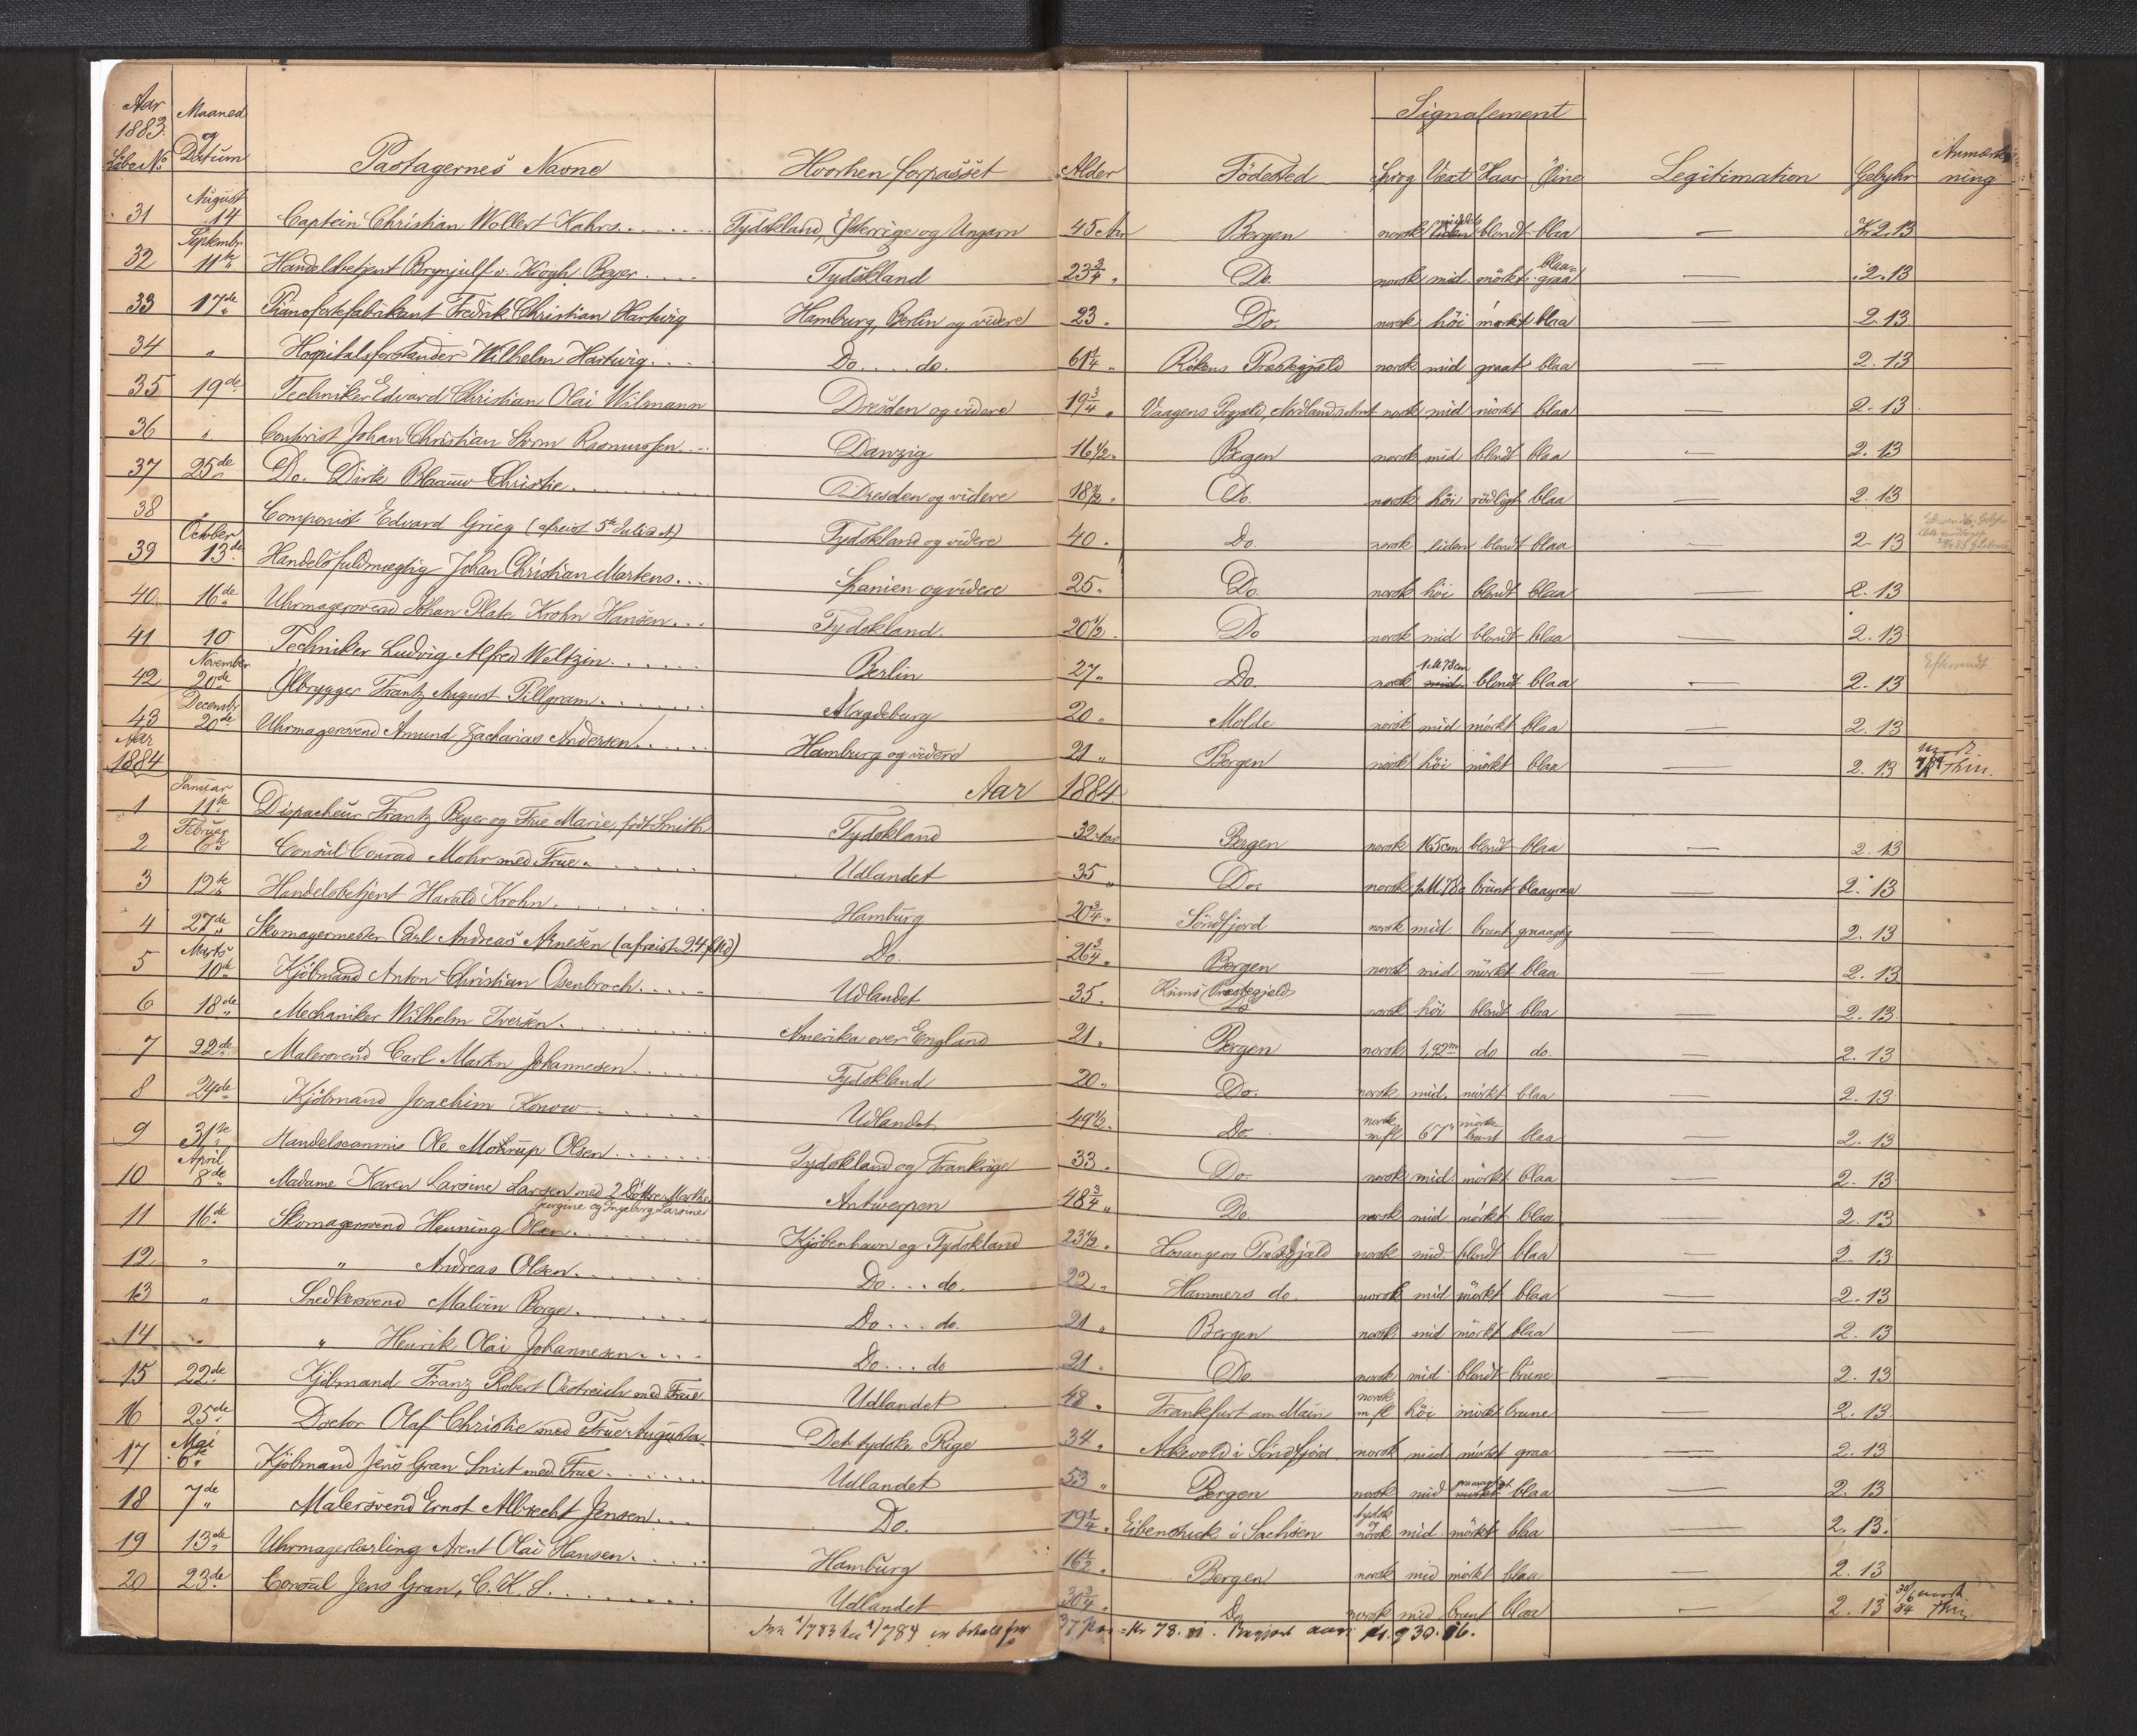 Aar 1883. Løbe No Maaned og Datum Pastagernes Navne Hvorhen forpasset Alder Födested Signalement Sprog Væxt Haar Öine Legitimation Gebyhr Anmærkning
31 August 14 Captein Christian Wollert Kahrs Tydskland, Østerrige og Ungarn 45 Aar Bergen norsk middels liden blondt blaa — Kr 2.13
32 Septembr 11te Handelsbetjent Brynjulf v. Krogh Beyer Tydskland 23 3/4 " Do. norsk mid. mörkt blaa-graa — 2.13
33 17de Pianofortefabrikant Fredrik Christian Hartwig Hamburg, Berlin og videre 23 " Do. norsk höi mörkt blaa — 2.13
34 " Hospitalsforstander Wilhelm Hartwig Do. do. 61 1/4 " Rökens Præstegjeld norsk mid graat blaa — 2.13
35 19de Techniker Edvard Christian Olai Wilmann Dresden og videre 19 3/4 " Vaagens Prgjeld, Nordlands Amt norsk mid mörkt blaa — 2.13
36 " Contorist Johan Christian Sorm Rasmussen Danzig 16 1/2 " Bergen norsk mid blondt blaa — 2.13
37 25de Do. Dirk Blaauw Christie Dresden og videre 18 1/2 " Do. norsk höi rödligt blaa — 2.13
38 Componist Edvard Grieg (afreist 5te Juli d.A) Tydskland og videre 40 " Do. norsk liden blondt blaa 2.13
39 October 13de Handelsfuldmægtig Johan Christian Martens Spanien og videre 25 " Do. norsk höi blondt blaa — 2.13
40 16de Uhrmagersvend Johan Plate Krohn Hansen Tydskland 20 1/2 " Do norsk mid blondt blaa — 2.13
41 10 Techniker Ludvig Alfred Weltzin Berlin 27 " Do. norsk 1M78cm mid. blondt blaa — 2.13 Eftersendt
42 November 20de Ölbrygger Frantz August Pillgram Magdeburg 20 " Molde norsk mid mörkt blaa — 2.13
43 Decembr 20de Uhrmagersvend Amund Zacharias Andersen Hamburg og videre 21 " Bergen norsk höi mörkt blaa 2.13
Aar 1884 Aar 1884
1 Januar 11te Dispacheur Frantz Beyer og Frue Marie, född Smith Tydskland 32 Aar Bergen norsk 165cm blondt blaa — 2.13
2 Februar 6te Consul Conrad Mohr med Frue Udlandet 35 " Do. norsk 1M78c brunt blaagraa — 2.13
3 12te Handelsbetjent Harald Krohn Hamburg 20 3/4 " Söndfjord norsk mid brunt graaagtig 2.13
4 27de Skomagermester Carl Andreas Arnesen (afreist 24 Md) Do. 26 3/4 " Bergen norsk mid mörkt blaa — 2.13
5 Marts 10de Kjöbmand Anton Christian Osenbroch Udlandet 35 " Præstegjeld norsk höi blondt blaa — 2.13
6 18de Mechaniker Wilhelm Iversen Amerika over England 21 " Bergen norsk 1,92m do do. — 2.13
7 22de Malersvend Carl Martin Johannesen Tydskland 20 " Do. norsk mid. mörkt blaa — 2.13
8 24de Kjöbmand Joachim Konow Udlandet 49 1/2 " Do. norsk m.fl. 67" mörke brunt blaa — 2.13
9 31te Handelscommis Ole Mohrup Olsen Tydskland og Frankrige 33 " Do. norsk mid mörkt blaa — 2.13
10 April 8de Madame Karen Larsine Larsen med 2 Döttre Marthe Georgine og Ingeborg Larsine Antwerpen 48 3/4 " Do. norsk mid mörkt blaa — 2.13
11 16de Skomagersvend Henning Olsen Kjöbenhavn og Tydskland 23 1/2 " Hosangers Præstegjæld norsk mid. blondt blaa — 2.13
12 " " Andreas Olsen Do do. 22 " Hammers do. norsk mid mörkt blaa — 2.13
13 " Snedkersvend Malvin Borge Do do. 21 " Bergen norsk mid mörkt blaa — 2.13
14 " " Henrik Olai Johannesen Do do 21 " Do. norsk mid blondt brune — 2.13
15 22de Kjöbmand Franz Robert Oestreich med Frue Udlandet 48 " Frankfurt am Main norsk m.fl höi mörkt brune — 2.13
16 25de Doctor Olaf Christie med Frue Augusta Det tydske Rige 34 " Askevold i Söndfjord norsk mid mörkt graa — 2.13
17 Mai 6te Kjöbmand Jens Gran Smit med Frue Udlandet 53 " Bergen norsk mid graaagtigt mörkt blaa — 2.13
18 7de Malersvend Ernst Albrecht Jensen Do. 19 1/4 " Eibenstock i Sachsen tydsk og norsk mid. mörkt blaa — 2.13.
19 13de Uhrmagerlærling Arent Olai Hansen Hamburg 16 1/2 " Bergen norsk mid mörkt blaa — 2.13
20 23de Consul Jens Gran, C. K. S. Udlandet 30 3/4 " Do norsk mid brunt blaa — 2.13
1/7 83 1/7 84 37 Kr 78.81 Kr. 930.06.